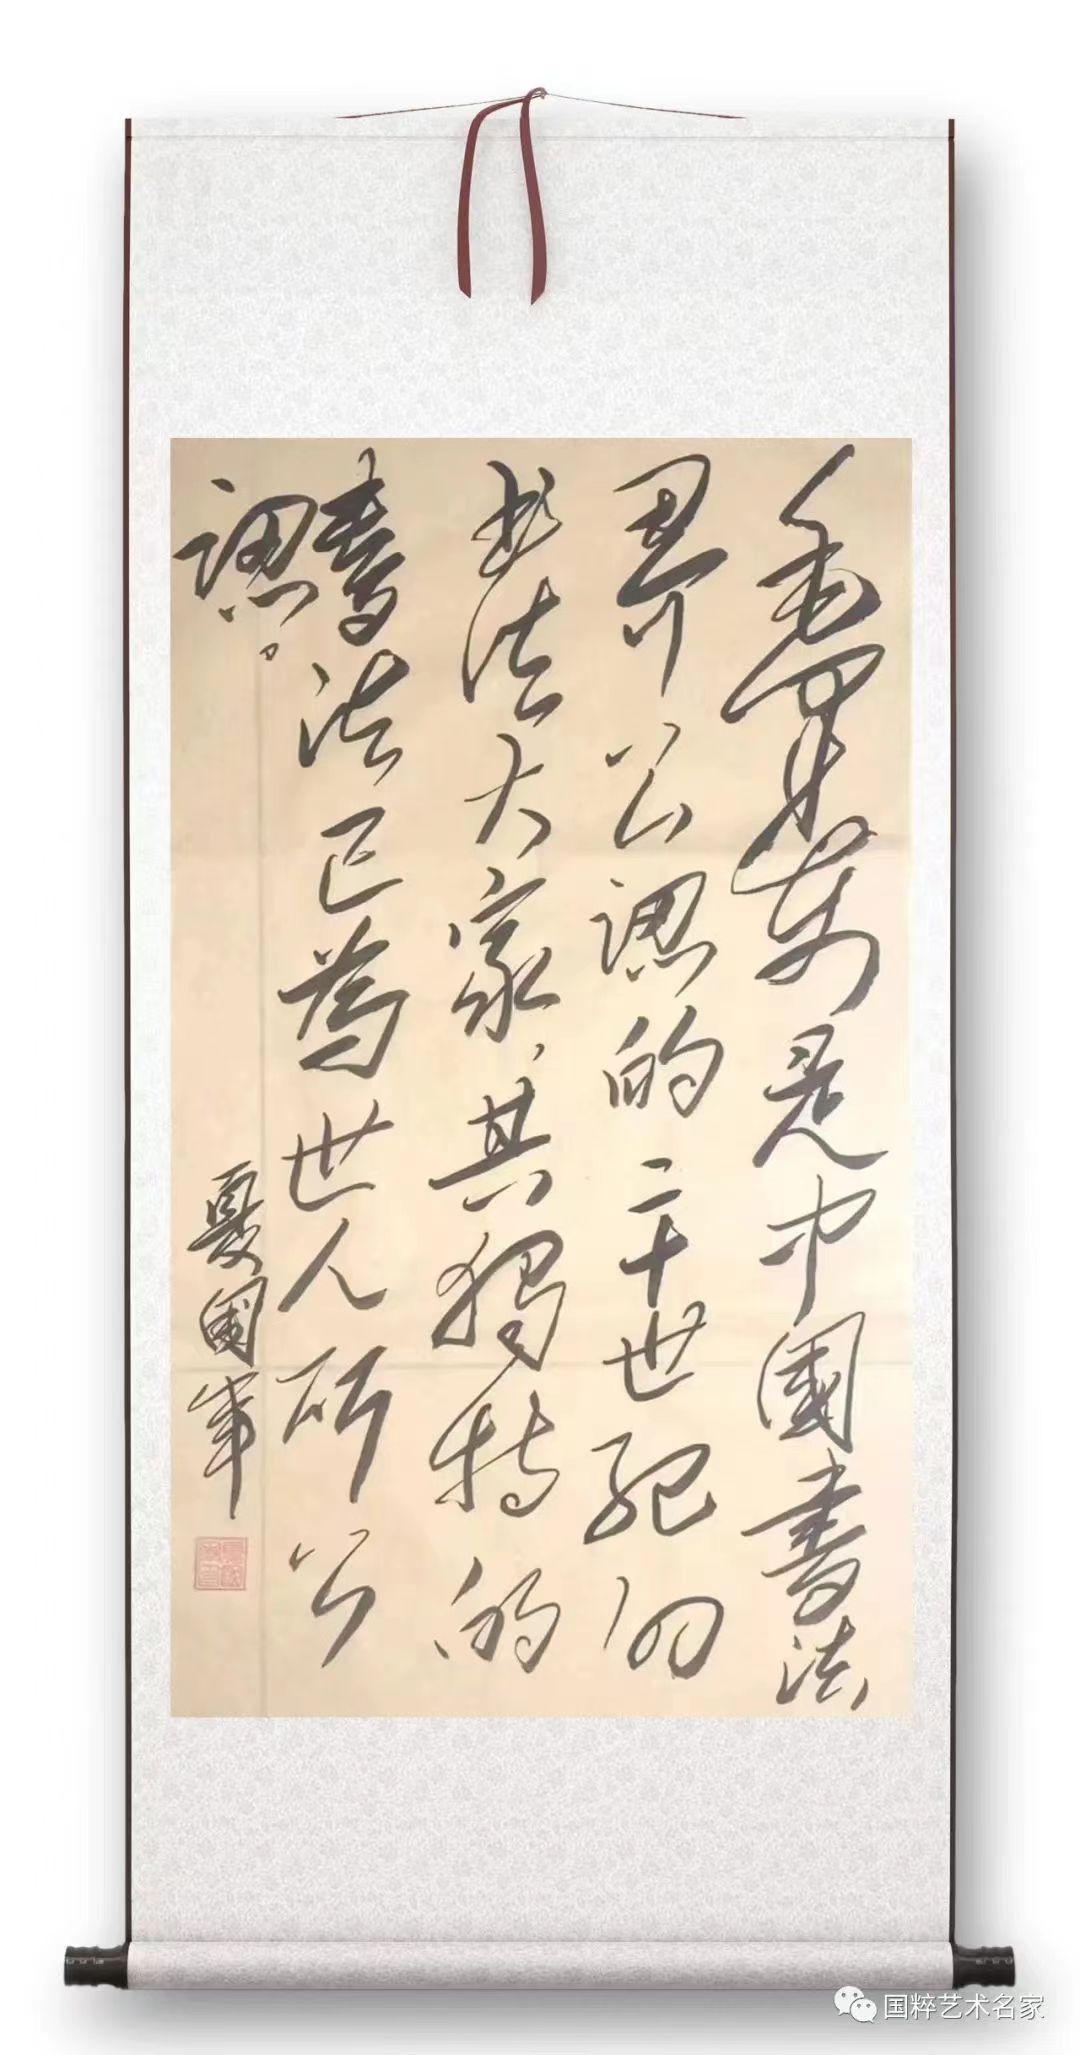 毛澤东是中國書法
界公認的二十世紀的
书法大家，其獨特的
書法已為世人所公
認。
夏國军
国粹艺术名家